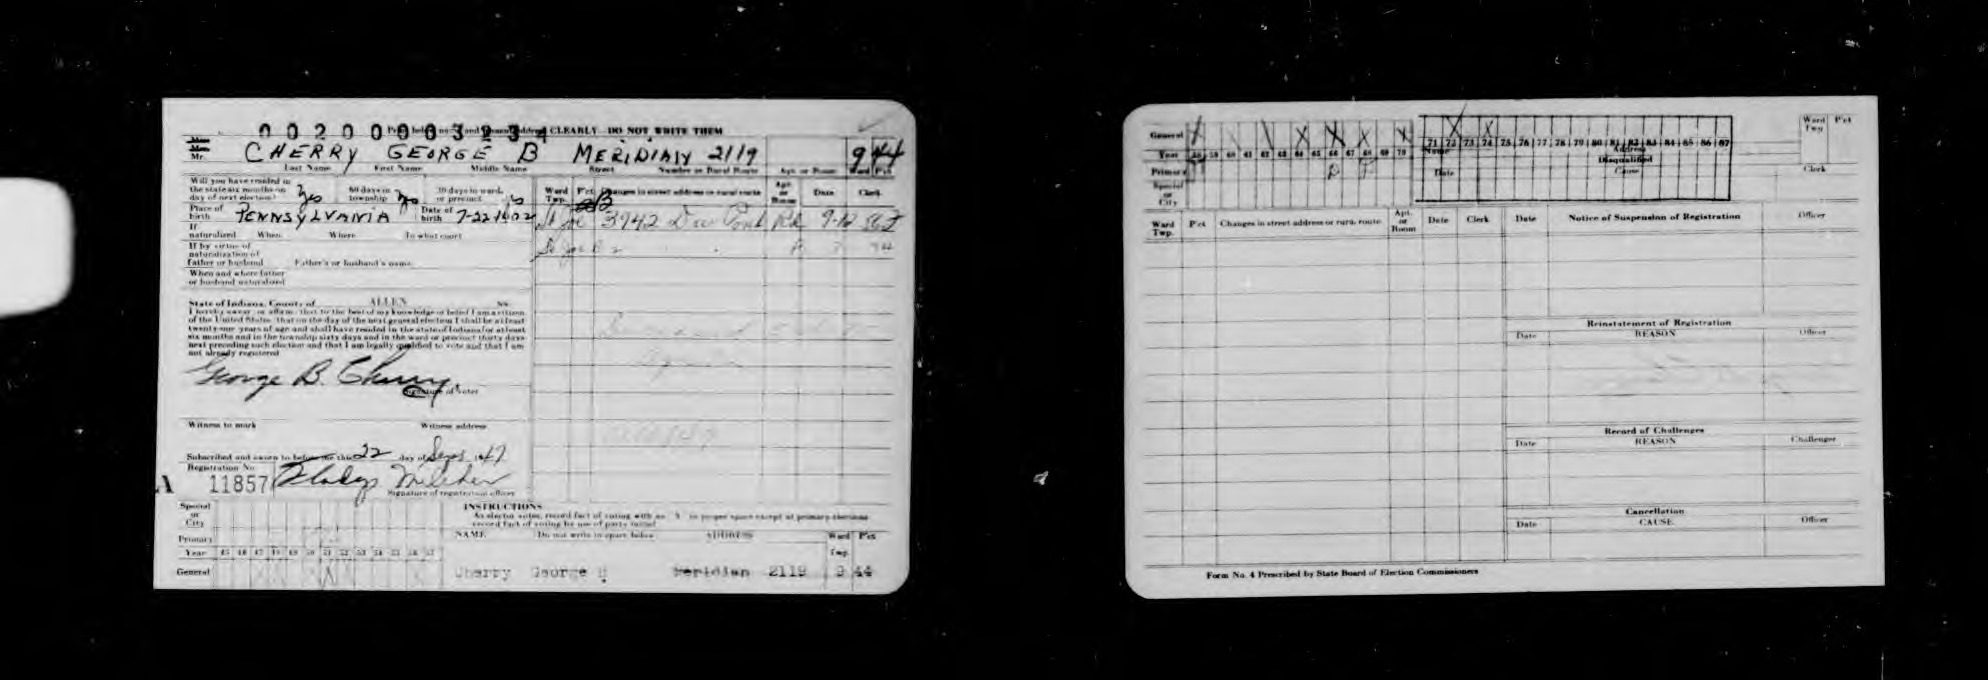 0020003234
Print below name and present address CLEARLY—DO NOT WRITE THEM
Mr. CHERRY GEORGE B MERIDIAN 2119 9 44
Last Name First Name Middle Name Street Number or Rural Route Apt. or Room Ward Pct
Will you have resided in the state six months on day of next election? Yes 60 days in township Yes 30 days in ward or precinct
Place of birth PENNSYLVANIA Date of birth 7-22-1902
If naturalized When Where To what court
If by virtue of naturalization of Father or husband Father's or husband's name
When and where father or husband naturalized
Ward Twp. Pct. Changes in street address or rural route Apt. or Room Date Clerk
St Joe 3942 Dew Pond Rd 9-12
State of Indiana, County of ALLEN ss.
I hereby swear (or affirm) that to the best of my knowledge or belief I am a citizen
of the United States, that on the day of the next general election I shall be at least
twenty-one years of age and shall have resided in the state of Indiana for at least
six months and in the township sixty days and in the ward or precinct thirty days
next preceding such election and that I am legally qualified to vote and that I am
not already registered
George B. Cherry
Signature of Voter
Witness to mark Witness address
Subscribed and sworn to before me this 22 day of Sept 1947
Registration No
A 11857 Gladys
Signature of registration officer
Special or City
Primary
Year 45 46 47 48 49 50 51 52 53 54 55 56 57
General
INSTRUCTIONS
As elector votes, record fact of voting with an X in proper space except at primary elections
record fact of voting by use of party initial
NAME Do not write in space below ADDRESS Ward Twp. Pct
Cherry George B Meridian 2119 9 44
General X X X X X X X X
Year 58 59 60 61 62 63 64 65 66 67 68 69 70 71 72 73 74 75 76 77 78 79 80 81 82 83 84 85 86 87
Primary
Special or City
Name Address
Disqualified
Date Cause
Ward Twp Pct
Clerk
Ward Twp. Pct Changes in street address or rural route Apt. or Room Date Clerk
Date Notice of Suspension of Registration Officer
Reinstatement of Registration
Date REASON Officer
Record of Challenges
Date REASON Challenger
Cancellation
Date CAUSE Officer
Form No. 4 Prescribed by State Board of Election Commissioners